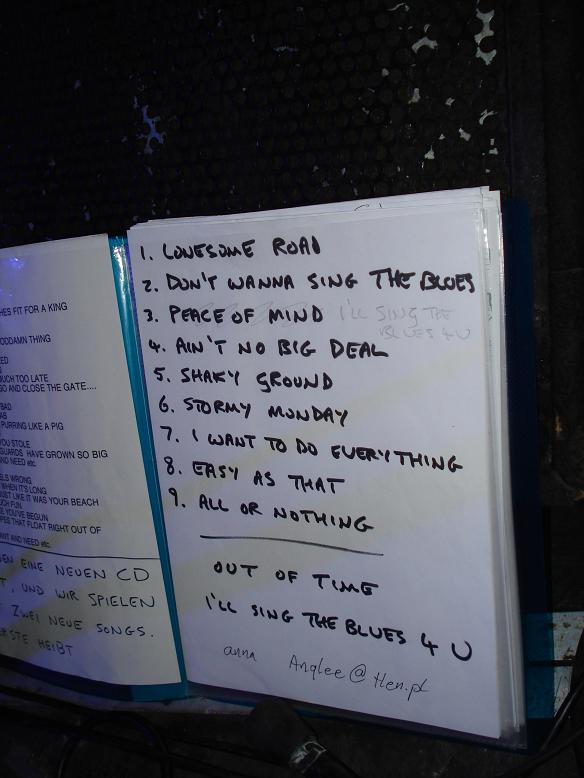 HES FIT FOR A KING
ODDAMN THING
ED
UCH TOO LATE
GO AND CLOSE THE GATE....
BAD
AS
PURRING LIKE A PIG
YOU STOLE
GUARDS HAVE GROWN SO BIG
AND NEED etc.
ELS WRONG
WHEN IT'S LONG
JUST LIKE IT WAS YOUR BEACH
UCH FUN
E YOU'VE BEGUN
PES THAT FLOAT RIGHT OUT OF
ANT AND NEED etc.
EN EINE NEUEN CD
T, UND WIR SPIELEN
T ZWEI NEUE SONGS.
ERSTE HEIßT
1. LONESOME ROAD
2. DON'T WANNA SING THE BLUES
3. PEACE OF MIND I'LL SING THE
BLUES 4 U
4. AIN'T NO BIG DEAL
5. SHAKY GROUND
6. STORMY MONDAY
7. I WANT TO DO EVERYTHING
8. EASY AS THAT
9. ALL OR NOTHING
OUT OF TIME
I'LL SING THE BLUES 4 U
anna Anglee@tlen.pl